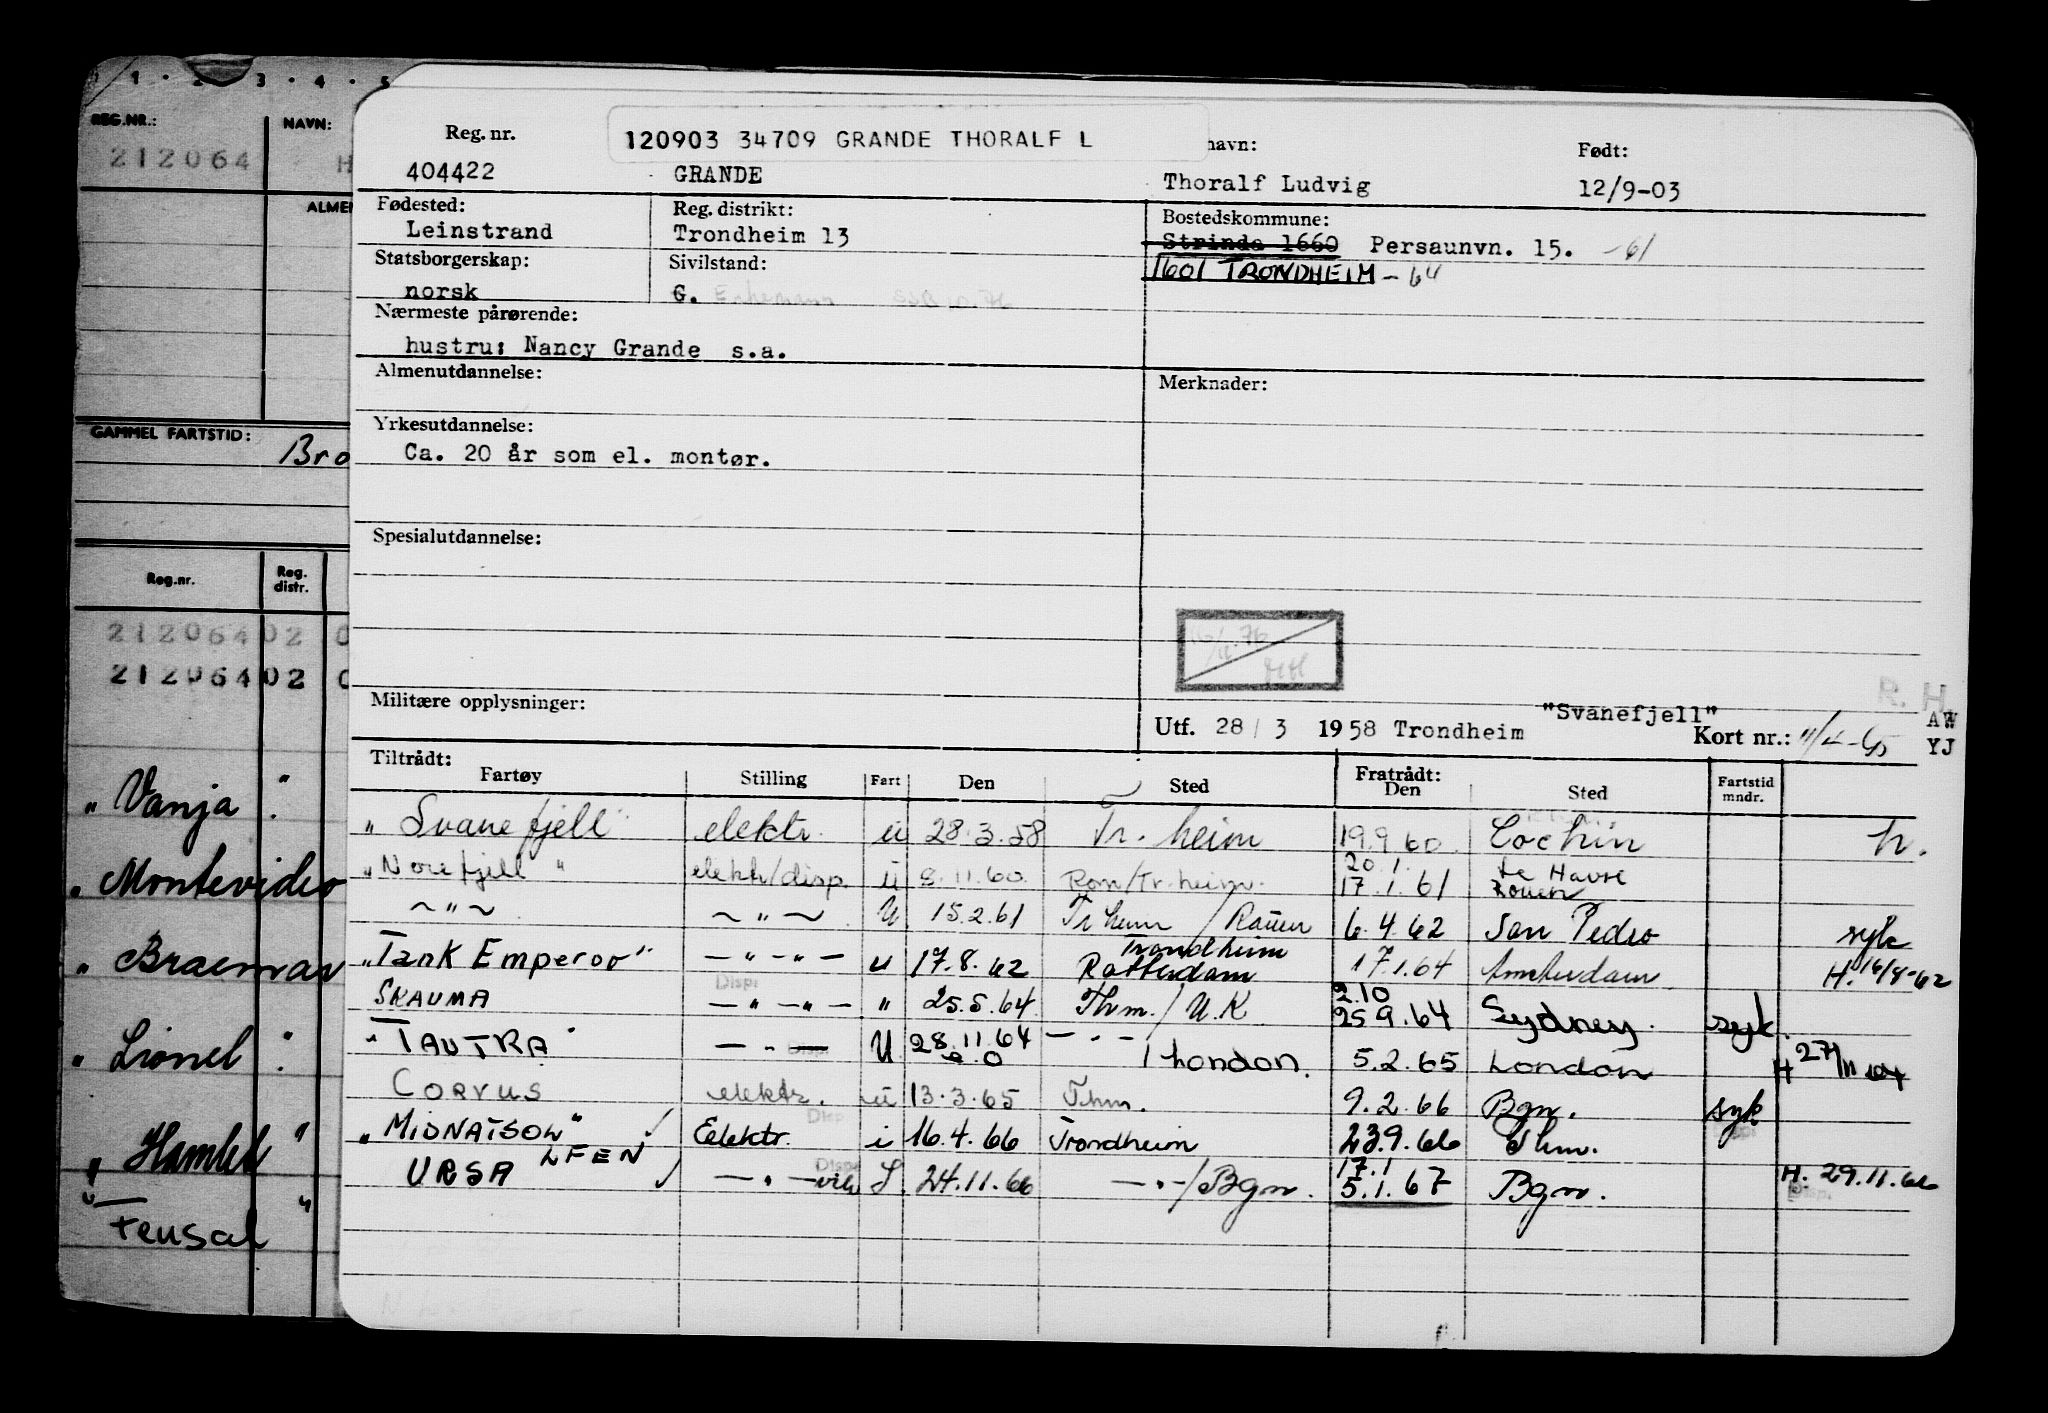 1 · 2 · 3 · 4 · 5
REG.NR.: NAVN:
212064 H
ALMEN
GAMMEL FARTSTID:
Bro
Reg.nr. Reg. distr.
212064 02 0
212064 02 0
„ Vanja "
„ Montevideo
„ Braemar
„ Lionel "
„ Hamlet "
" Feusal "
120903 34709 GRANDE THORALF L
Reg. nr. navn: Født:
404422 GRANDE Thoralf Ludvig 12/9-03
Fødested: Reg. distrikt: Bostedskommune:
Leinstrand Trondheim 13 Strinda 1660 Persaunvn. 15. -61
Statsborgerskap: Sivilstand: 1601 TRONDHEIM - 64
norsk G. Enkemann
Nærmeste pårørende:
hustru: Nancy Grande s.a.
Almenutdannelse: Merknader:
Yrkesutdannelse:
Ca. 20 år som el. montør.
Spesialutdannelse:
R. H.
Militære opplysninger: "Svanefjell" AW
Utf. 28 / 3 1958 Trondheim Kort nr.: YJ
Tiltrådt: Fratrådt:
Fartøy Stilling Fart Den Sted Den Sted Fartstid mndr.
„ Svanefjell " elektr. u 28.3.58 Tr. heim 19.9.60 Cochin h.
„ Norefjell " elektr/disp. u 8.11.60 Ron/Tr.heim. 20.1. 17.1.61 Le Havre Rouen
~ " ~ ~ " ~ U 15.2.61 Tr heim / Rouen 6.4.62 San Pedro syk
„Tank Emperor" — " — " — u 17.8.62 Trondheim Rotterdam 17.1.64 Amsterdam H. 16/8-62
SKAUMA Disp — " — " — " 25.5.64 Thm. / U.K 2.10 25.9.64 Sydney. syk.
" TAUTRA " — " — U 28.11.64 — " — / London. 5.2.65 London H 27/11 64
CORVUS elektr. u 13.3.65 Thm. 9.2.66 Bgn. syk
„ MIDNATSOL " Disp Elektr. i 16.4.66 Trondheim 23.9.66 Thm.
URSA Disp — " — S. 24.11.66 — " — / Bgn. 17.1 5.1.67 Bgn. H. 29.11.66